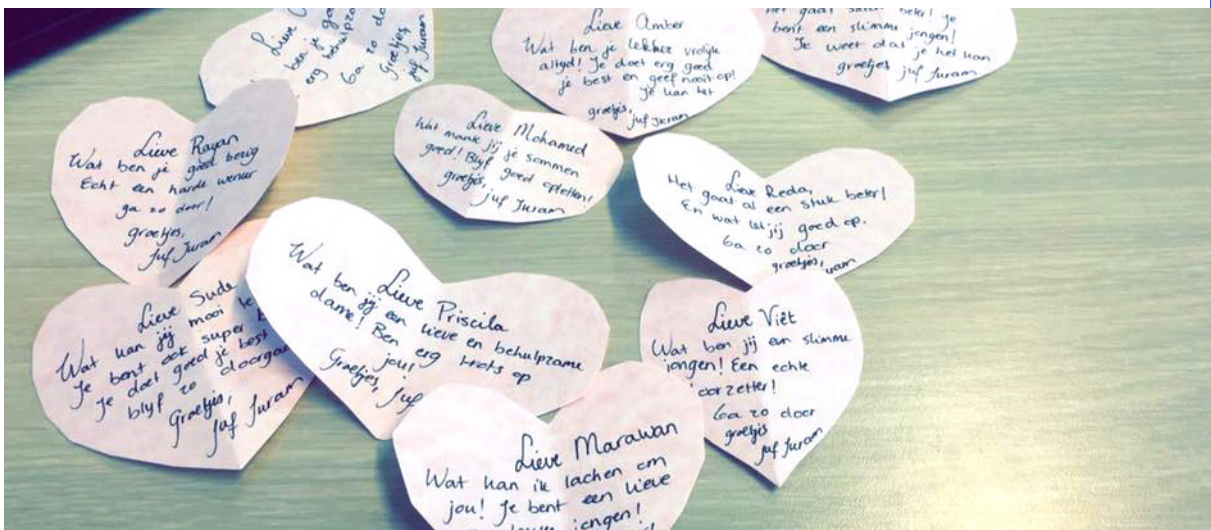 Lieve
ben je
erg behulpza
Ga zo do
groetjes
juf Juram
Lieve Amber
Wat ben je lekker vrolijk
altijd! Je doet erg goed
je best en geef nooit op!
Je kan het
groetjes,
juf Juram
bent een slimme jongen!
Je weet dat je het kan
groetjes juf Juram
Lieve Rayan
Wat ben je goed bezig
Echt een harde werker
ga zo door!
groetjes,
juf Juram
Lieve Mohamed
Wat maak jij je sommen
goed! Blijf goed opletten!
groetjes,
juf Juram
Lieve Reda,
Het gaat al een stuk beter!
En wat let jij goed op.
Ga zo door
groetjes,
uram
Lieve Sude
Wat kan jij mooi
Je bent ook super
Je doet goed je best
blijf zo doorgaa
Groetjes,
juf Juram
Lieve Priscila
Wat ben jij een lieve en behulpzame
dame! Ben erg trots op
jou!
Groetjes,
juf
Lieve Viêt
Wat ben jij een slimme
jongen! Een echte
oorzetter!
Ga zo door
groetjes
juf Juram
Lieve Marawan
Wat kan ik lachen om
jou! Je bent een lieve
jongen!